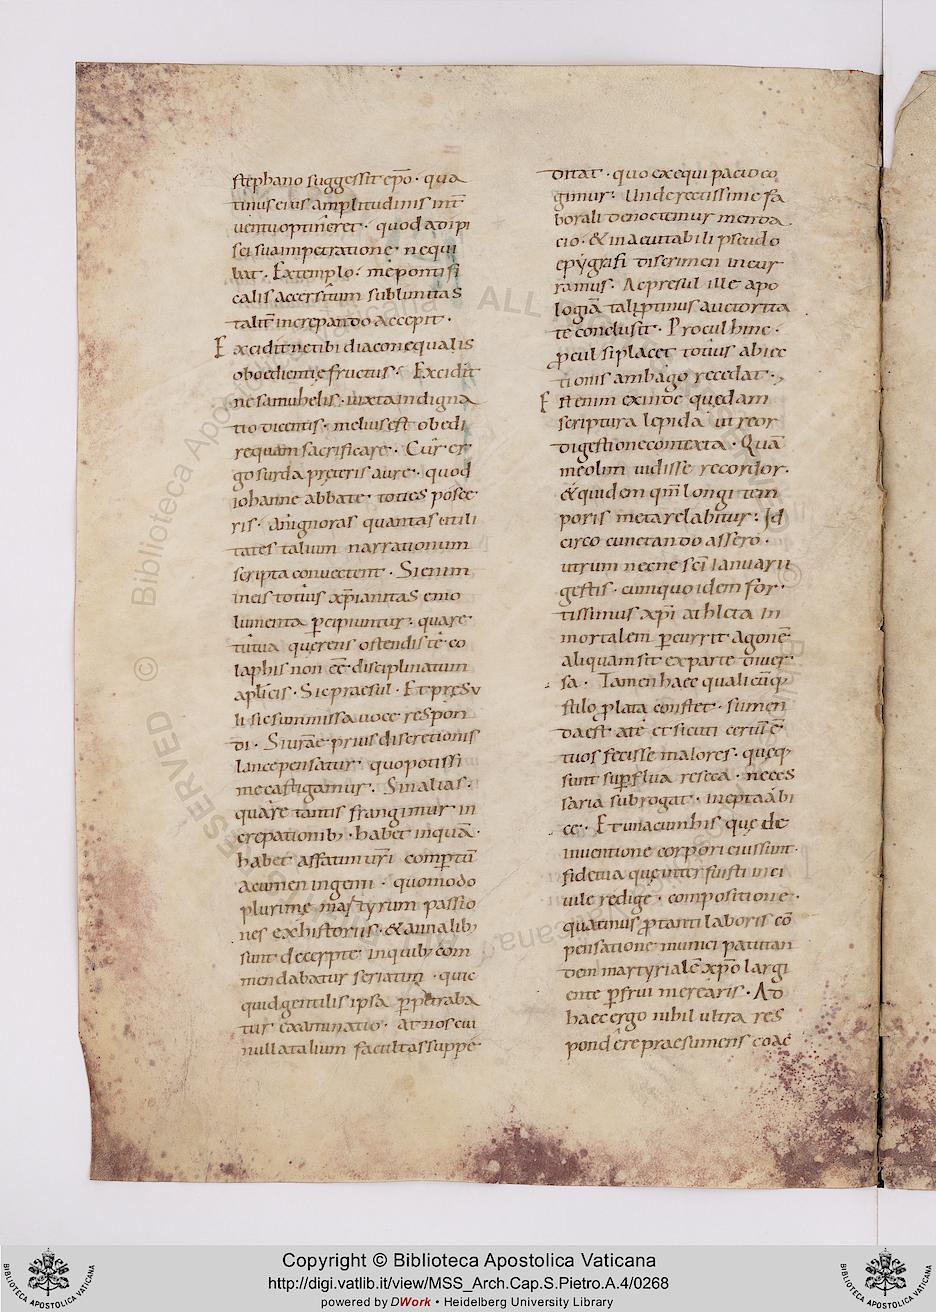 stephano suggessit ep̄o · qua
tinus eius amplitudinis int̄
uentu optineret · quod adipi
sci sua impetratione · nequi
bat · Extemplo · me ponti fi
calis accersitum sublimitas
talit̄ increpando accepit ·
Excidit ne tibi diacon equalis
oboedientię fructus · Excidit
ne samuhelis · iuxta indigna
tio dicentis · melius est obedi
re quam sacrificare · Cur er
go surda pręteris aure · quod
iohanne abbate · toties posce
ris · an ignoras quantas utili
tates talium narrationum
scripta conuectent · Si enim
in eis totius xp̄ianitas emo
lumenta percipiuntur · quare
tutua querens ostendis te co
laphis non ee disciplinatum
aplicis · Sic praesul · Et pręsu
li sic summissa uoce respon
di · Si uirae prius discretionis
lance pensatur · quo potissi
me castigamur · Sin alias ·
quare tantis frangimur in
crepationib; · habet inquā ·
habet affatim uri compertū
acumen ingenii · quomodo
plurimę martyrum passio
nes ex historiis · & annalib;
sunt decerptę in quib; com
mendabatur seriatim · quic
quid gentilis ipsa perpetraba
tur examinatio · at nos cui
nulla talium facultas suppe
ditat · quo exequi pacto co
gimur · Unde rectissime la
borali denoctemur menda
cio · & ineuitabili pseudo
epygrafi discrimen incur
ramus · Ac presul ille apo
logiā tali ptinus auctorita
te conclusit · Procul hinc ·
procul si placet totius abiec
tionis ambago recedat ·
Est enim exinde quędam
scriptura lepida ut reor
digestione contexta · Quā
me olim uidisse recordor ·
& quidem qm̄ longi tem
poris meta relabitur · Id
circo cunctando assero ·
utrum necne sc̄i Ianuarii
gestis · cumquo idem for
tissimus xp̄i athleta in
mortalem percurrit agonē
aliquam sit ex parte diuer
sa · Tamen haec qualicūq;
stilo prolata constet · sumen
da est a te et sicuti certū ē
tuos fecisse maiores · queq;
sunt superflua reseca · neces
saria subrogat · inepta abi
ce · Et una cum his quę de
inuentione corpori eius sunt ·
fidetia que inter fuisti inci
uile redige · compositione ·
quatinus pro tanti laboris cō
pensatione munici patutan
dem martyrialē xp̄o largi
ente perfrui merearis · Ad
haec ergo nihil ultra res
pondere praesumens coac̄
© Biblioteca Apostolica Vaticana ALL RIGHTS RESERVED
Copyright © Biblioteca Apostolica Vaticana
http://digi.vatlib.it/view/MSS_Arch.Cap.S.Pietro.A.4/0268
powered by DWork • Heidelberg University Library
BIBLIOTECA APOSTOLICA VATICANA
BIBLIOTECA APOSTOLICA VATICANA